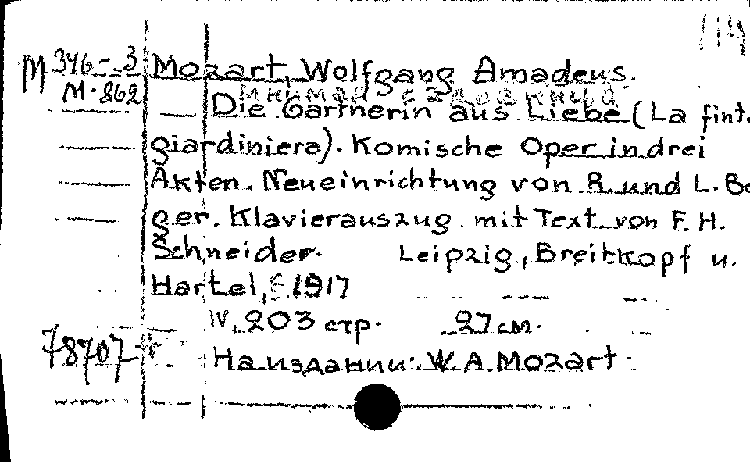 М 346-3 Mozart, Wolfgang Amadeus.
М-862
Die Gärtnerin aus Liebe (La fint.
giardiniera). Komische Oper in drei
Akten. Neueinrichtung von R. und L. Be
ger. Klavierauszug mit Text von F. H.
Schneider. Leipzig, Breitkopf u.
Hartel, 1917
IV, 203 стр. 27 см.
78707
На издании: W. A. Mozart.